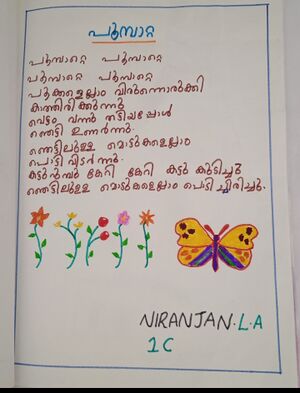 പൂമ്പാറ്റ
പൂമ്പാറ്റെ പൂമ്പാറ്റെ
പൂമ്പാറ്റെ പൂമ്പാറ്റെ
പൂക്കളെല്ലാം വിരുന്നൊരുക്കി
കാത്തിരിക്കുന്നു
വെട്ടം വന്നു തട്ടിയപ്പോൾ
ഞെട്ടി ഉണർന്നു.
ഞെട്ടിലുള്ള മൊട്ടുകളെല്ലാം
പൊട്ടി വിടർന്നു.
കട്ടുറുമ്പു കേറി കേറി കട്ടു കുടിച്ചു
ഞെട്ടിലുള്ള മൊട്ടുകളെല്ലാം പൊട്ടി ച്ചിരിച്ചു.
NIRANJAN.L.A
1C